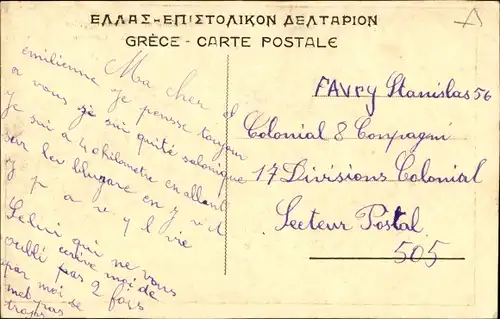 ΕΛΛΑΣ-ΕΠΙΣΤΟΛΙΚΟΝ ΔΕΛΤΑΡΙΟΝ
GRÈCE - CARTE POSTALE
Ma cher
émilienne Je pensse toujour
a vous je sui quité salonique
Je sui a 40 kilometre en allant
sur les blugare en
y p a v y l vie
Celui qui ne vous
oubli pas 2 fois
ecrive moi de
par moi se
met pas
trops
FAVRY Stanislas 56
Colonial 8 Conpagni
17 Divisions Colonial
Secteur Postal
505